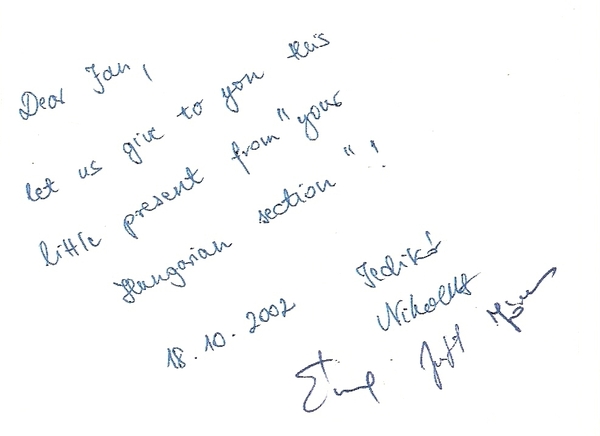 Dear Jan,
let us give to you this
little present from "your
Hungarian section"!
18.10.2002